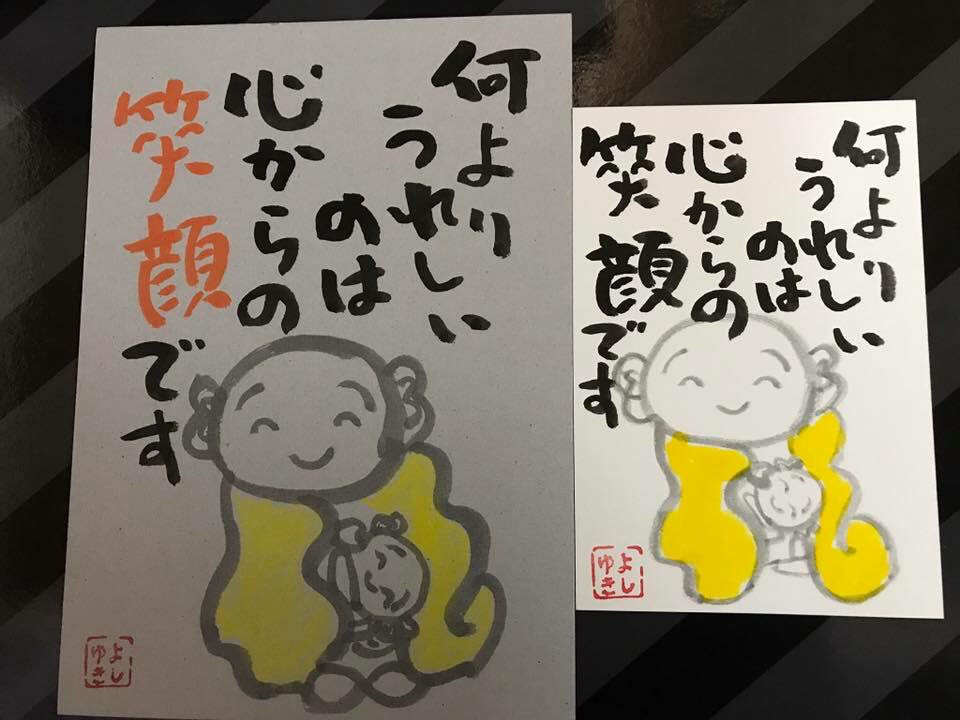 何より
うれしい
のは
心からの
笑顔です
よし
ゆき
何より
うれしい
のは
心からの
笑顔です
よし
ゆき